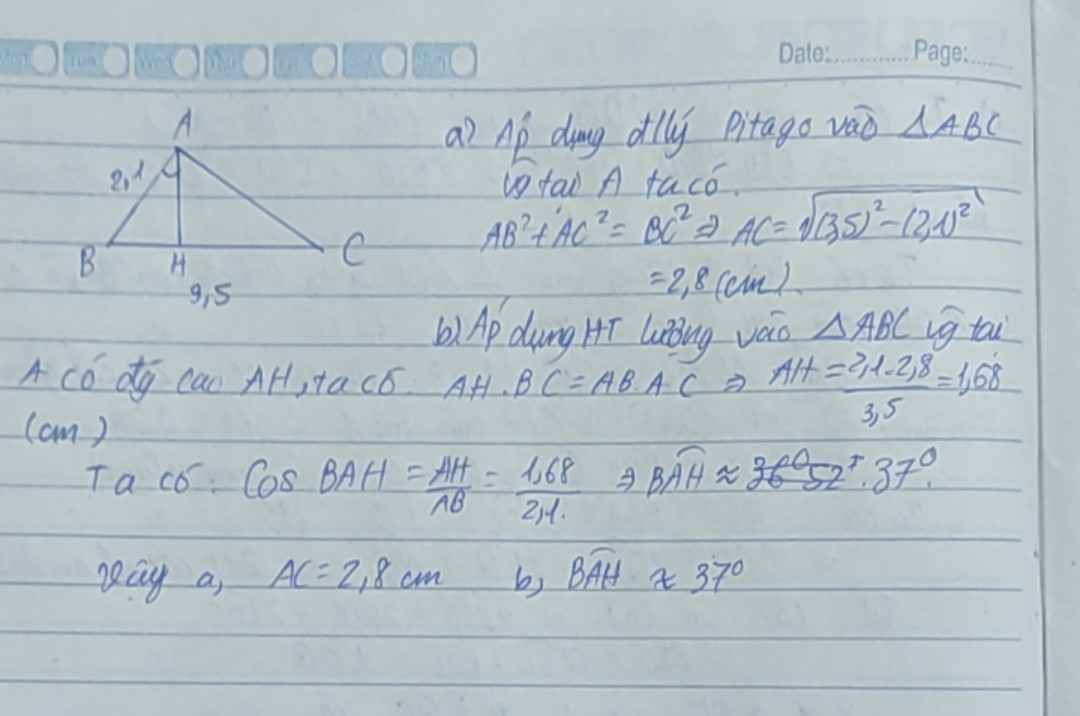 Date:............ Page:......
A
2,1
B
H
C
3,5
a) Áp dụng đ/lý Pitago vào △ABC
vg tại A ta có.
AB² + AC² = BC² ⇒ AC = √(3,5)² - (2,1)²
= 2,8 (cm).
b) Áp dụng HT lượng vào △ABC vg tại
A có đg cao AH, ta có. AH . BC = AB . AC ⇒ AH = 2,1 . 2,8 / 3,5 = 1,68
(cm)
Ta có: Cos BAH = AH / AB = 1,68 / 2,1. ⇒ BAH ≈ 36⁰52' . 37⁰.
Vậy a, AC = 2,8 cm b, BAH ≈ 37⁰